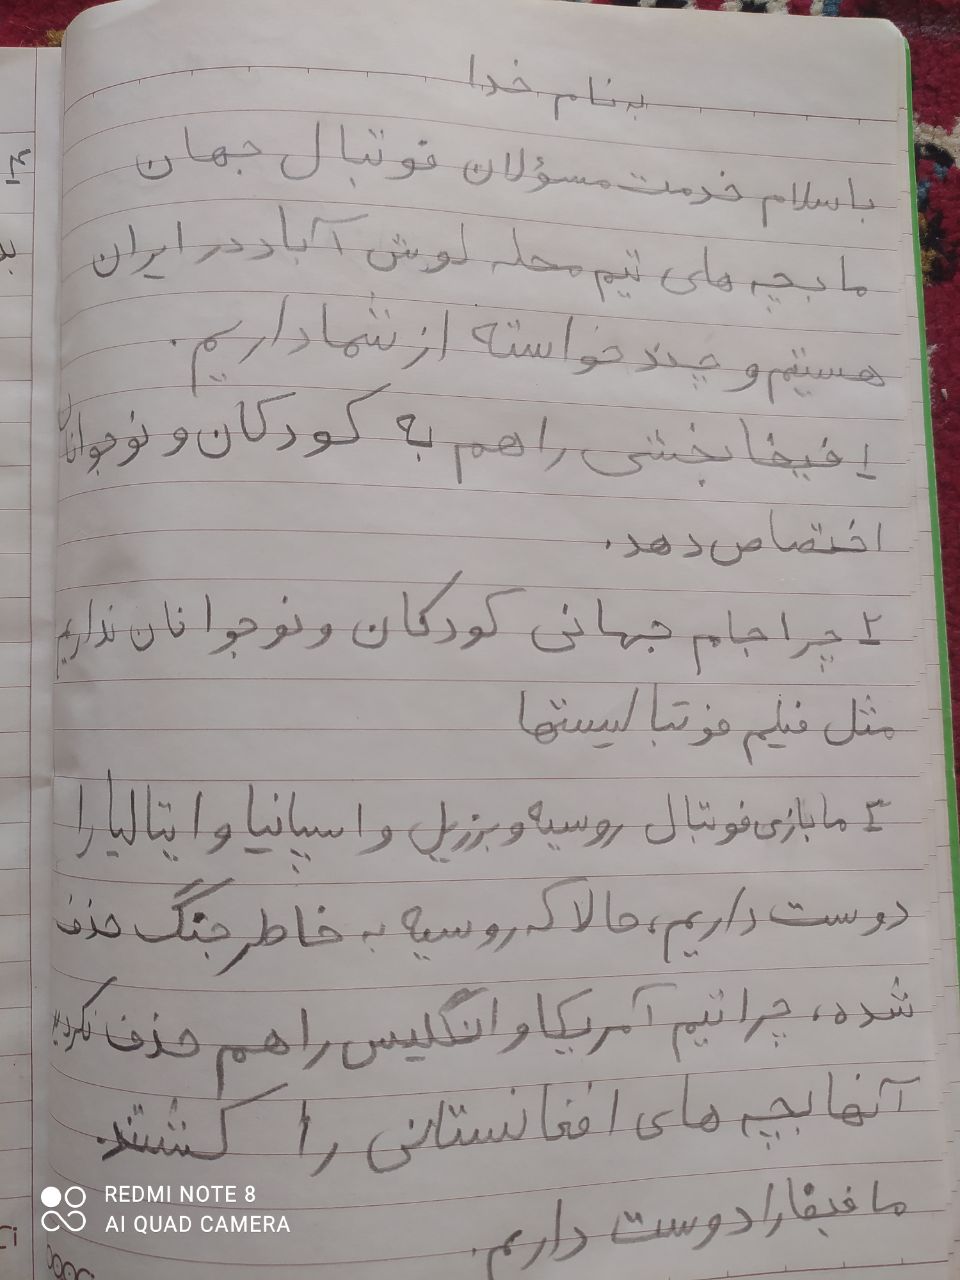 به نام خدا
باسلام خدمت مسؤلان فوتبال جهان
ما بچه های تیم محله لوش آباد در ایران
هستیم و چند خواسته از شما داریم.
۱ـ فیفا بخشی را هم به کودکان و نوجوانان
اختصاص دهد.
۲ـ چرا جام جهانی کودکان و نوجوانان نداریم
مثل فیلم فوتبالیستها
۳ـ ما بازی فوتبال روسیه و برزیل و اسپانیا و ایتالیا را
دوست داریم، حالا که روسیه به خاطر جنگ حذف
شده، چرا تیم آمریکا و انگلیس را هم حذف نکردید
آنها بچه های افغانستانی را کشتند.
ما فیفا را دوست داریم.
REDMI NOTE 8
AI QUAD CAMERA